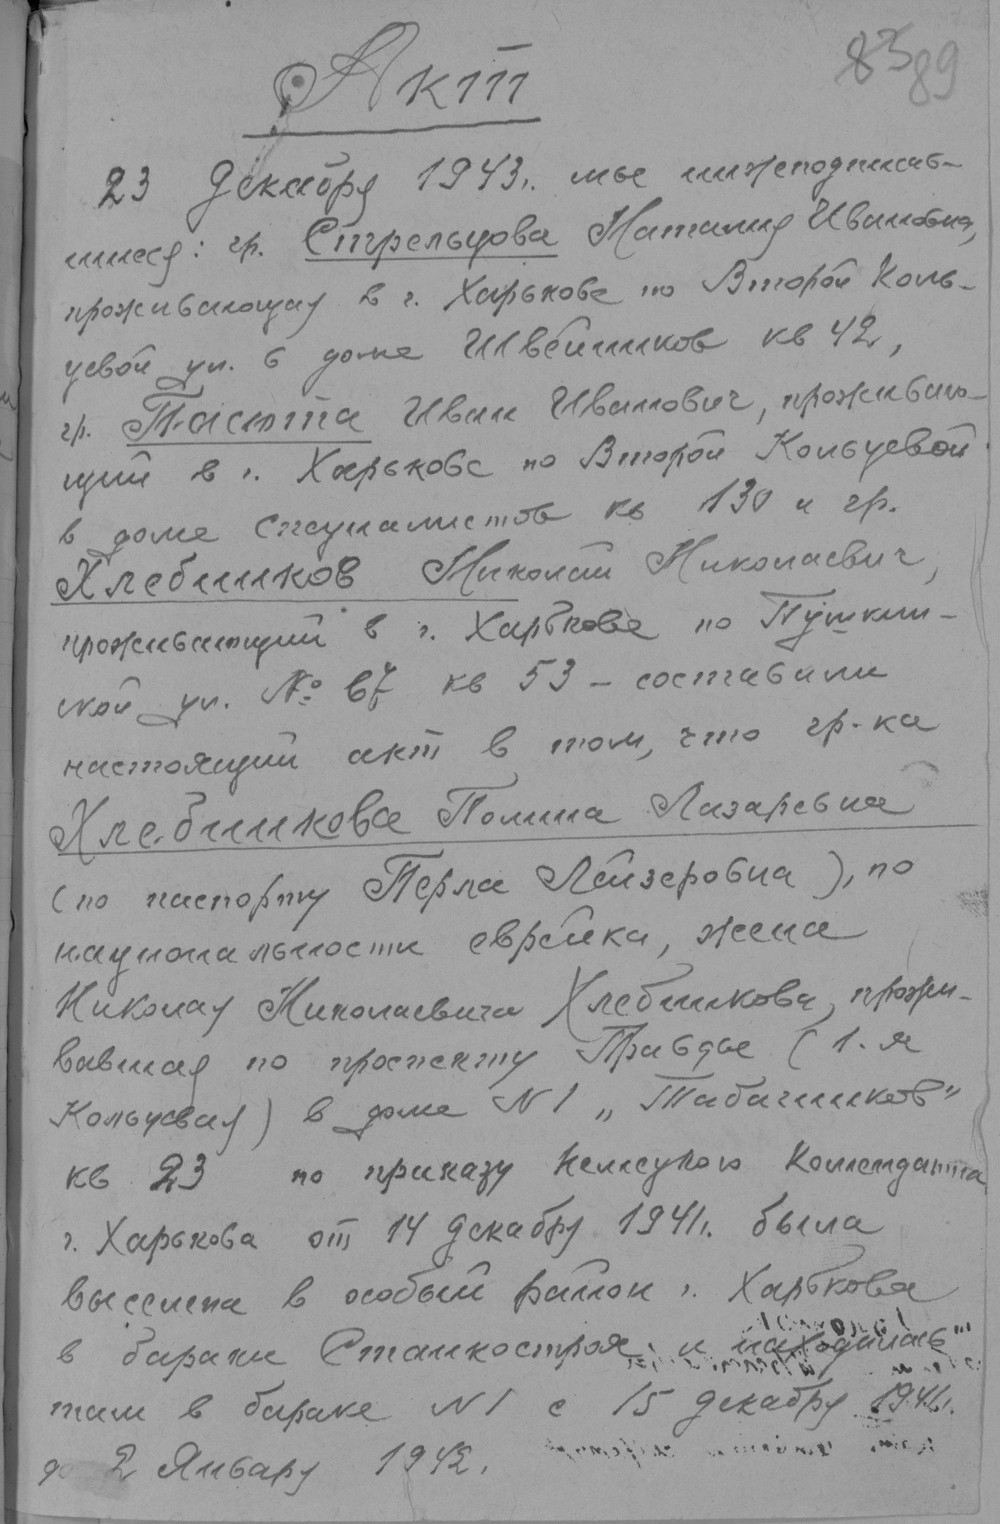 83 89
Акт
23 декабря 1943г. мы нижеподписав-
шиеся: гр. Стрельцова Наталия Ивановна,
проживающая в г. Харькове по Второй Коль-
цевой ул. в доме Швейников кв 42,
гр. Пастта Иван Иванович, проживаю-
щий в г. Харькове по Второй Кольцевой
в доме специалистов кв 130 и гр.
Хлебников Николай Николаевич,
проживающий в г. Харькове по Пушкин-
ской ул. № 67 кв 53 – составили
настоящий акт в том, что гр-ка
Хлебникова Полина Лазаревна
(по паспорту Перла Лейзеровна), по
национальности еврейка, жена
Николая Николаевича Хлебникова, прожи-
вавшая по проспекту Правды (1-я
Кольцевая) в доме N1 „Табачников"
кв 23 по приказу Немецкого Коменданта
г. Харькова от 14 декабря 1941г. была
выселена в особый район г. Харькова
в бараки Станкостроя и находилась
там в бараке N1 с 15 декабря 1941г.
до 2 Января 1942.